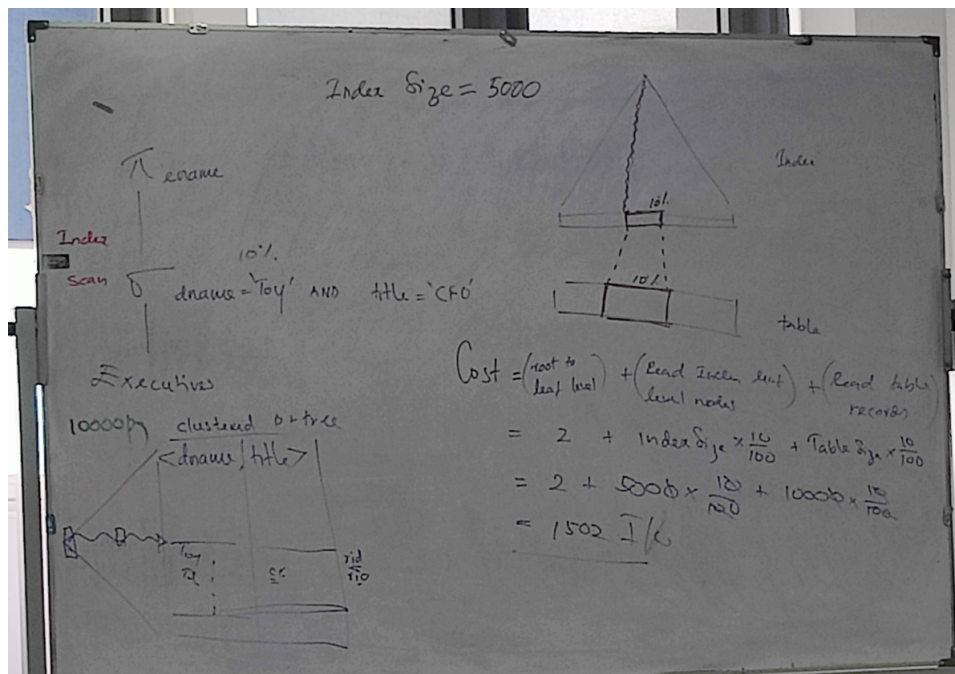 Index Size = 5000
π ename
Index
Scan
10%
σ dname = 'Toy' AND title = 'CFO'
Executives
10000 pg clustered B+ tree
<dname, title>
Toy
rid
10%
Index
10%
table
Cost = (root to leaf level) + (Read Index leaf level nodes) + (Read table records)
= 2 + Index Size × 10/100 + Table Size × 10/100
= 2 + 5000 × 10/100 + 10000 × 10/100
= 1502 I/O